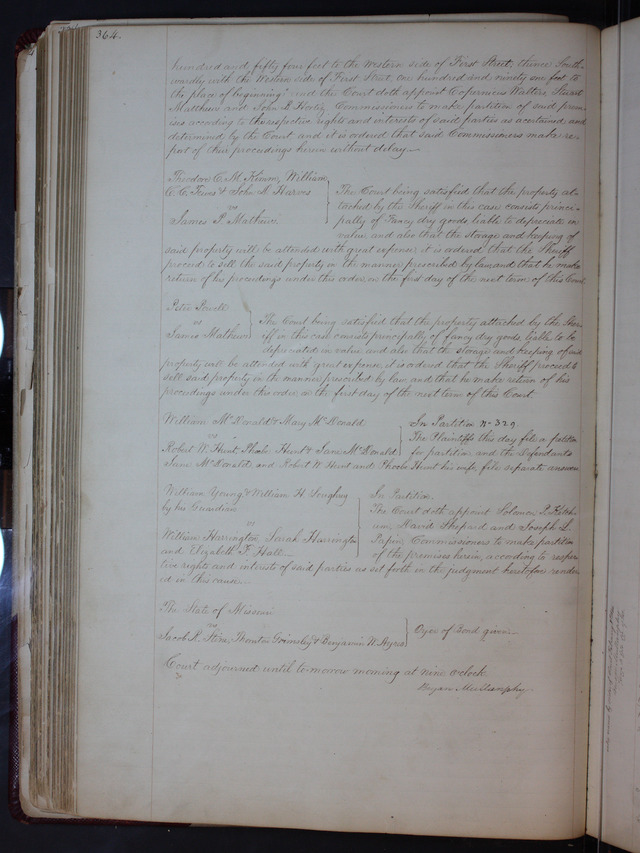 364.
hundred and fifty four feet to the western side of First Street, thence South
wardly with the Western side of First Street one hundred and ninety one feet to
the place of beginning" and the Court doth appoint Copernicus Walters Stuart
Matthews and John B Commissioners to make partition of said prem
ises according to the respective rights and interests of said parties as ascertained and
determined by the Court and it is ordered that said Commissioners make re-
port of their proceedings herein without delay.
Theodore C. M. William
C. C. & John
vs
James P. Mathews
The Court being satisfied that the property at-
tached by the Sheriff in this case consists princi-
pally of Fancy dry goods liable to depreciate in
value and also that the storage and keeping of
said property will be attended with great expense it is ordered that the Sheriff
proceed to sell the said property in the manner prescribed by law and that he make
return of his proceedings under this order on the first day of the next term of this Court
Peter Powell
vs
James Mathews
The Court being satisfied that the property attached by the Sher-
iff in this case consists principally of fancy dry goods liable to be
depreciated in value and also that the storage and keeping of said
property will be attended with great expense, it is ordered that the Sheriff proceed to
sell said property in the manner prescribed by law and that he make return of his
proceedings under this order on the first day of the next term of this Court.
William McDonald & Mary McDonald
vs
Robert W. Hunt, Phoebe Hunt & Jane McDonald
In Partition No 329
The Plaintiffs this day file a petition
for partition and the Defendants
Jane McDonald and Robert W Hunt and Phoebe Hunt his wife, file separate answers
William Young & William H.
by his Guardian
vs
William Harrington Sarah Harrington
and Elizabeth F. Hall
In Partition.
The Court doth appoint Solomon P.
David Shepard and Joseph L.
Papin, Commissioners to make partition
of the premises herein, according to respec-
tive rights and interests of said parties as set forth in the judgment heretofore render
ed in this cause.
The State of Missouri
vs
Jacob R. Thornton Grimsley & Benjamin W. Ayres
Oyer of Bond given
Court adjourned until to-morrow morning at nine o'clock.
Bryan Mullanphy.